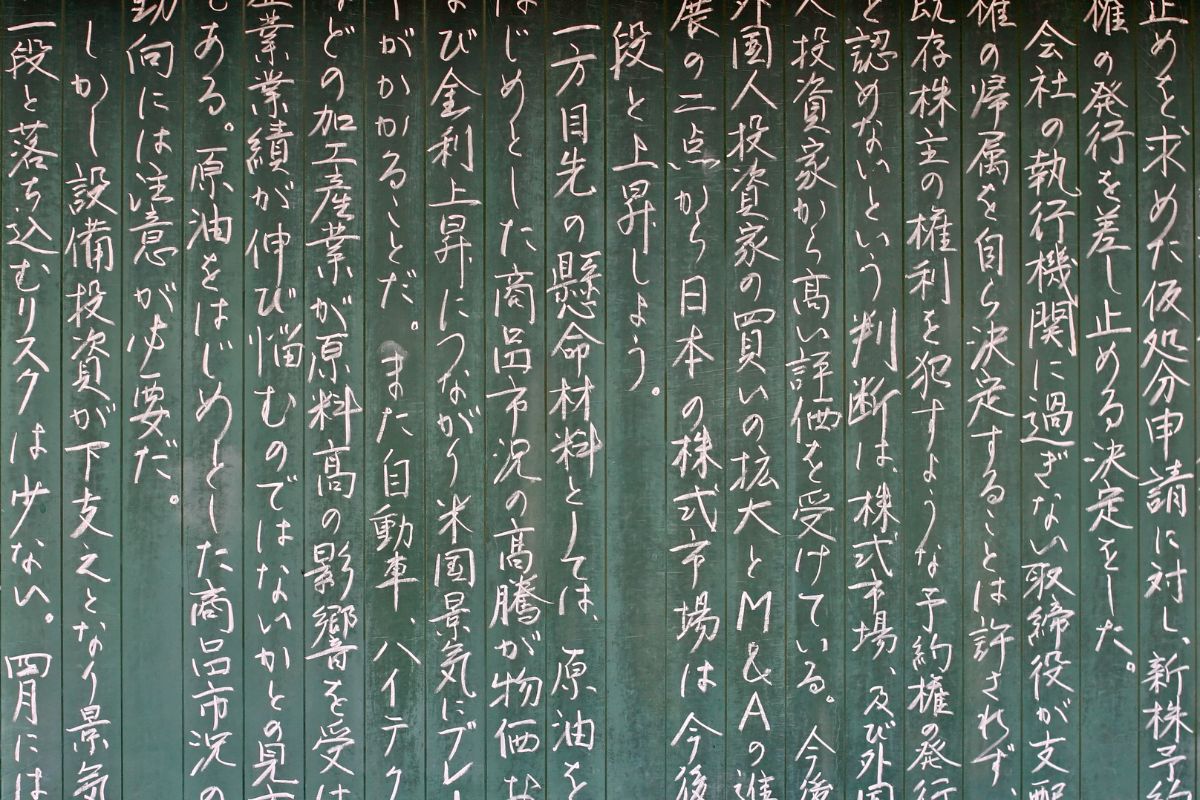 止めを求めた仮処分申請に対し、新株予約
権の発行を差し止める決定をした。
会社の執行機関に過ぎない取締役が支配
権の帰属を自ら決定することは許されず、
既存株主の権利を犯すような予約権の発行
と認めないという判断は、株式市場、及び外国
人投資家から高い評価を受けている。今後
外国人投資家の買いの拡大とM&Aの進
展の二点から日本の株式市場は今後
段と上昇しよう。
一方目先の懸命材料としては、原油を
はじめとした商品市況の高騰が物価な
なび金利上昇につながり米国景気にブレー
ーがかかることだ。また自動車、ハイテク
などの加工産業が原料高の影響を受け
企業業績が伸び悩むのではないかとの見方
もある。原油をはじめとした商品市況の
動向には注意が必要だ。
しかし設備投資が下支えとなり景気
一段と落ち込むリスクは少ない。四月には